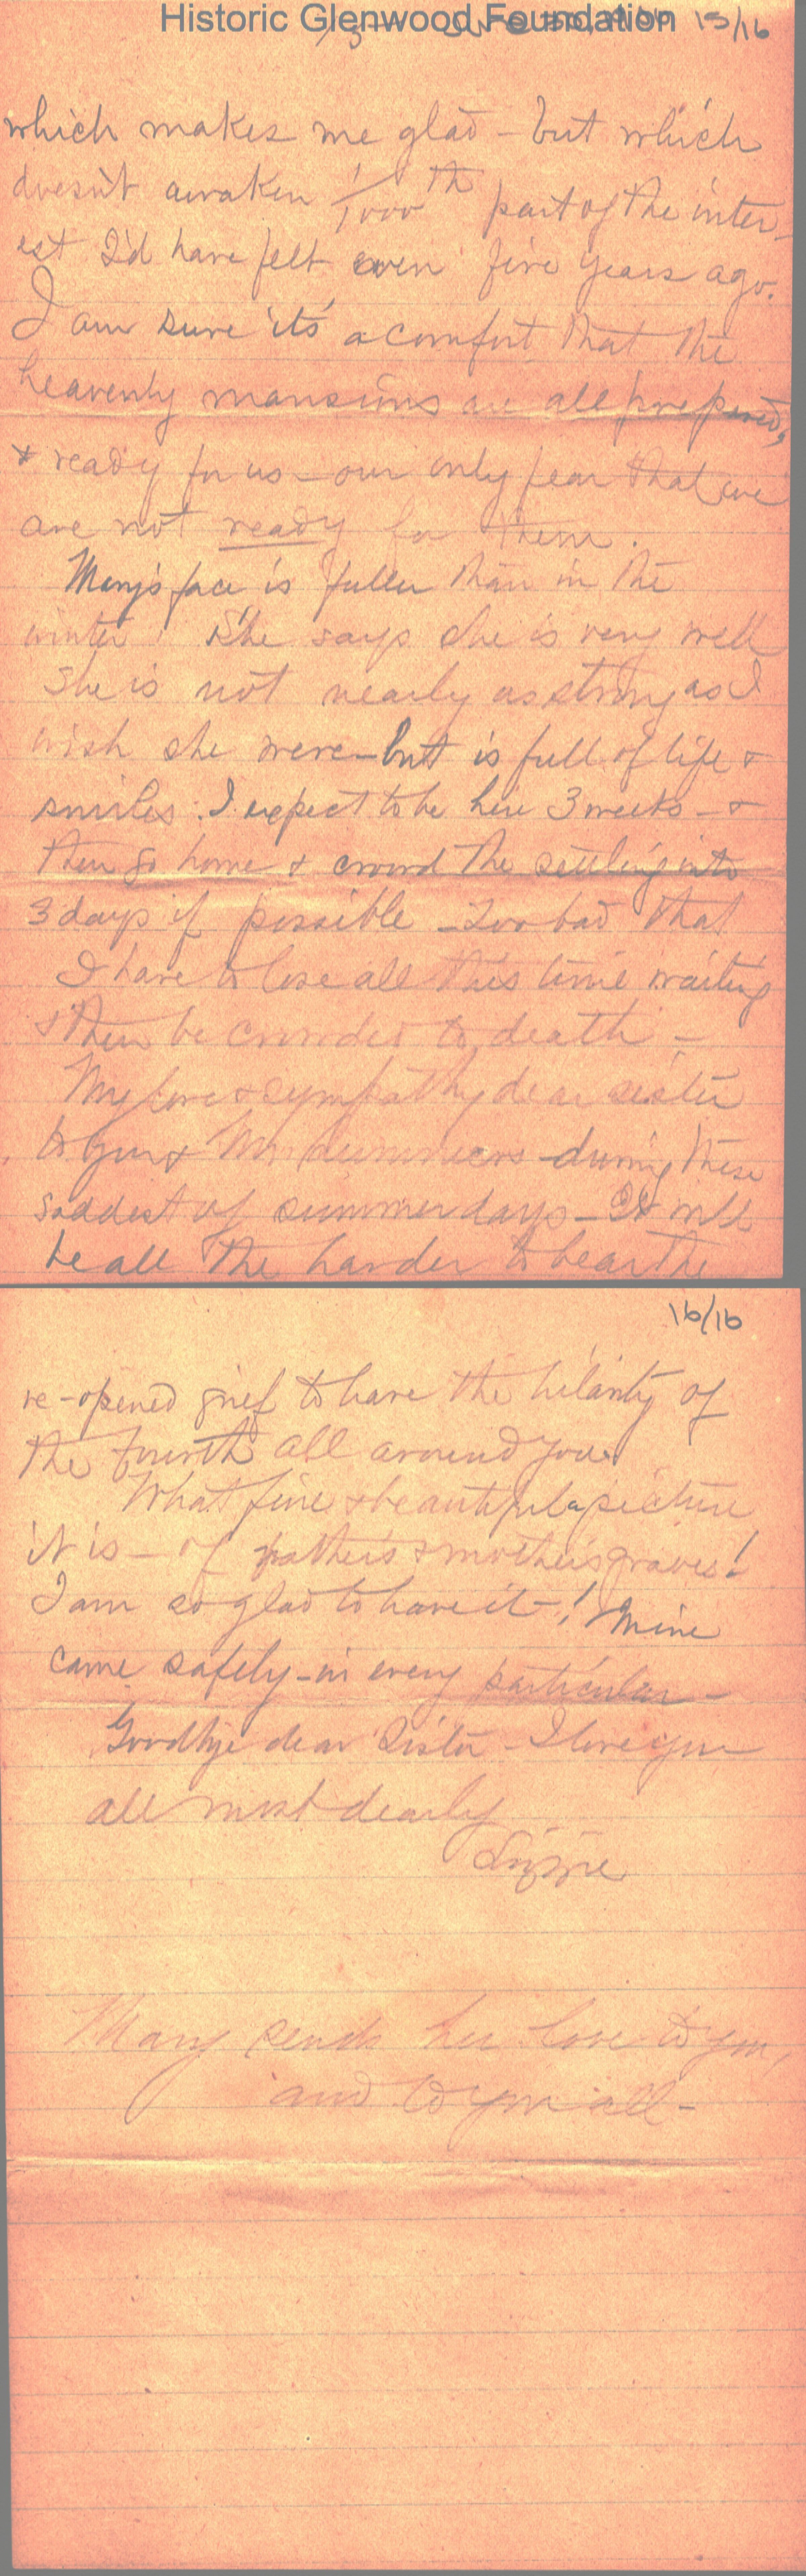 Historic Glenwood Foundation
15/16
which makes me glad - but which
doesn't awaken 1/1000th part of the inter-
est I'd have felt even five years ago.
I am sure 'its' a comfort that the
heavenly mansions are all prepared,
& ready for us - our only fear that we
are not ready for them.
Mary's face is fuller than in the
winter. She says she is very well
She is not nearly as strong as I
wish she were - but is full of life &
smiles. I expect to be here 3 weeks - &
then go home & crowd the settling into
3 days if possible - Too bad that
I have to lose all this time waiting
& then be crowded to death -
My love & sympathy dear sister
to you & Mr. during these
saddest of summer days - It will
be all the harder to bear the
16/16
re-opened grief to have the hilarity of
the fourth all around you.
What fine & beautiful a picture
it is - of father's & mother's graves!
I am so glad to have it -! Mine
came safely - in every particular -
Goodbye dear Sister - I love you
all most dearly
Lizzie
Mary sends her love to you,
and to you all -